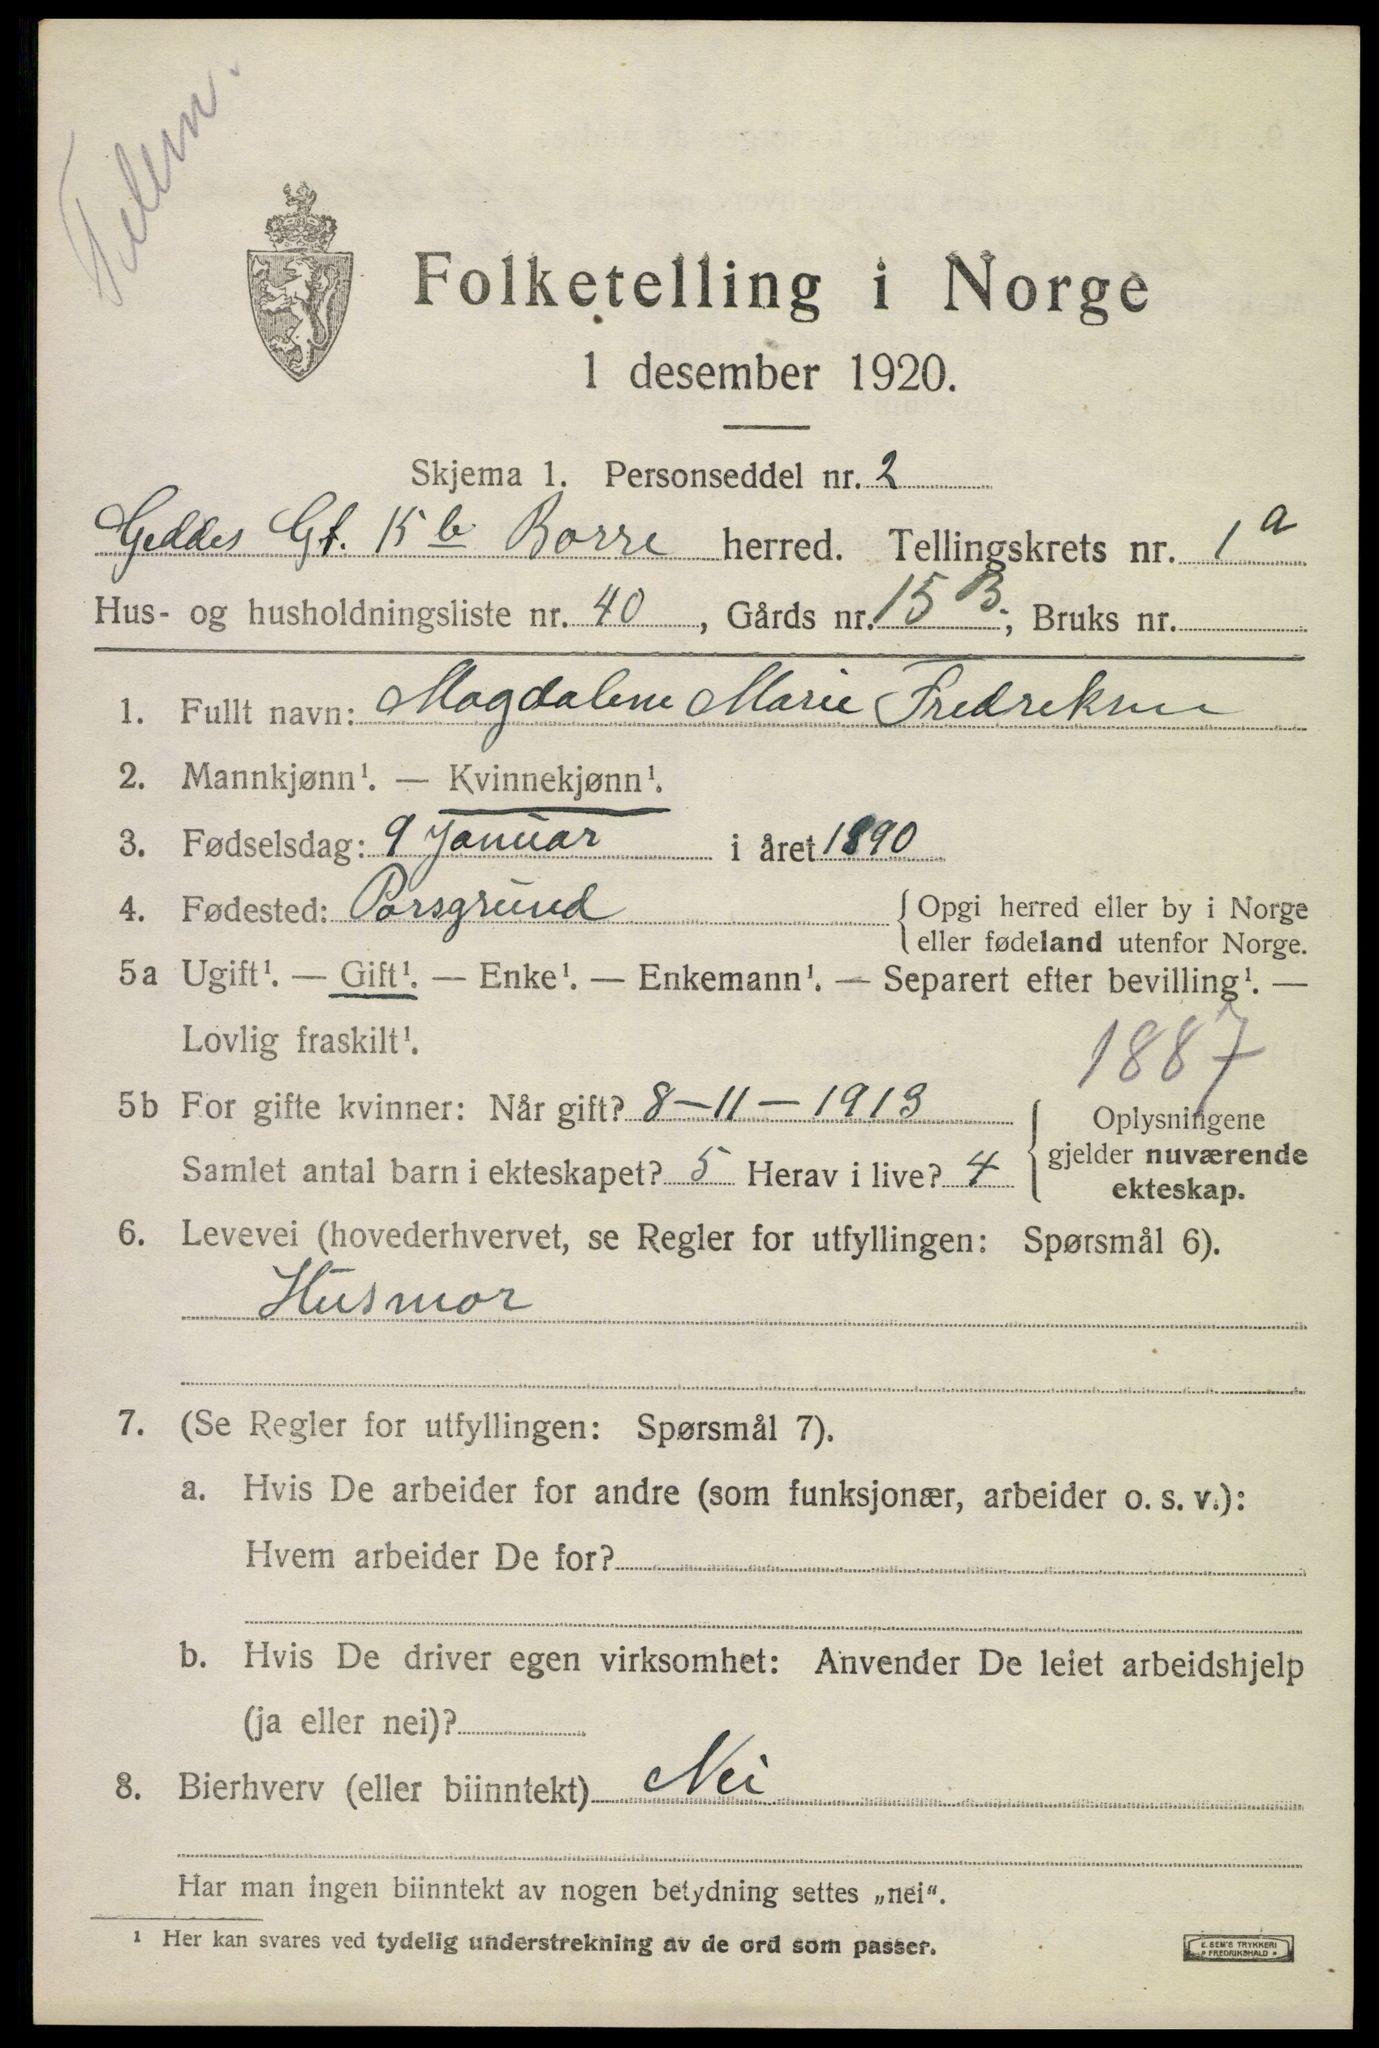 Telem.
Folketelling i Norge
1 desember 1920.
Skjema 1. Personseddel nr. 2
Geddes Gt. 15 b Borre herred. Tellingskrets nr. 1 a
Hus- og husholdningsliste nr. 40, Gårds nr. 15 B.; Bruks nr.
1. Fullt navn: Magdalene Marie Fredriksen
2. Mannkjønn¹. — Kvinnekjønn¹.
3. Fødselsdag: 9 Januar i året 1890
4. Fødested: Porsgrund
Opgi herred eller by i Norge
eller fødeland utenfor Norge.
5a Ugift¹. — Gift¹. — Enke¹. — Enkemann¹. — Separert efter bevilling¹. —
Lovlig fraskilt¹.
1887
5b For gifte kvinner: Når gift? 8-11-1913
Samlet antal barn i ekteskapet? 5 Herav i live? 4
Oplysningene
gjelder nuværende
ekteskap.
6. Levevei (hovederhvervet, se Regler for utfyllingen: Spørsmål 6).
Husmor
7. (Se Regler for utfyllingen: Spørsmål 7).
a. Hvis De arbeider for andre (som funksjonær, arbeider o. s. v.):
Hvem arbeider De for?
b. Hvis De driver egen virksomhet: Anvender De leiet arbeidshjelp
(ja eller nei)?
8. Bierhverv (eller biinntekt) Nei
Har man ingen biinntekt av nogen betydning settes „nei“.
¹ Her kan svares ved tydelig understrekning av de ord som passer.
E. SEM'S TRYKKERI
FREDRIKSHALD